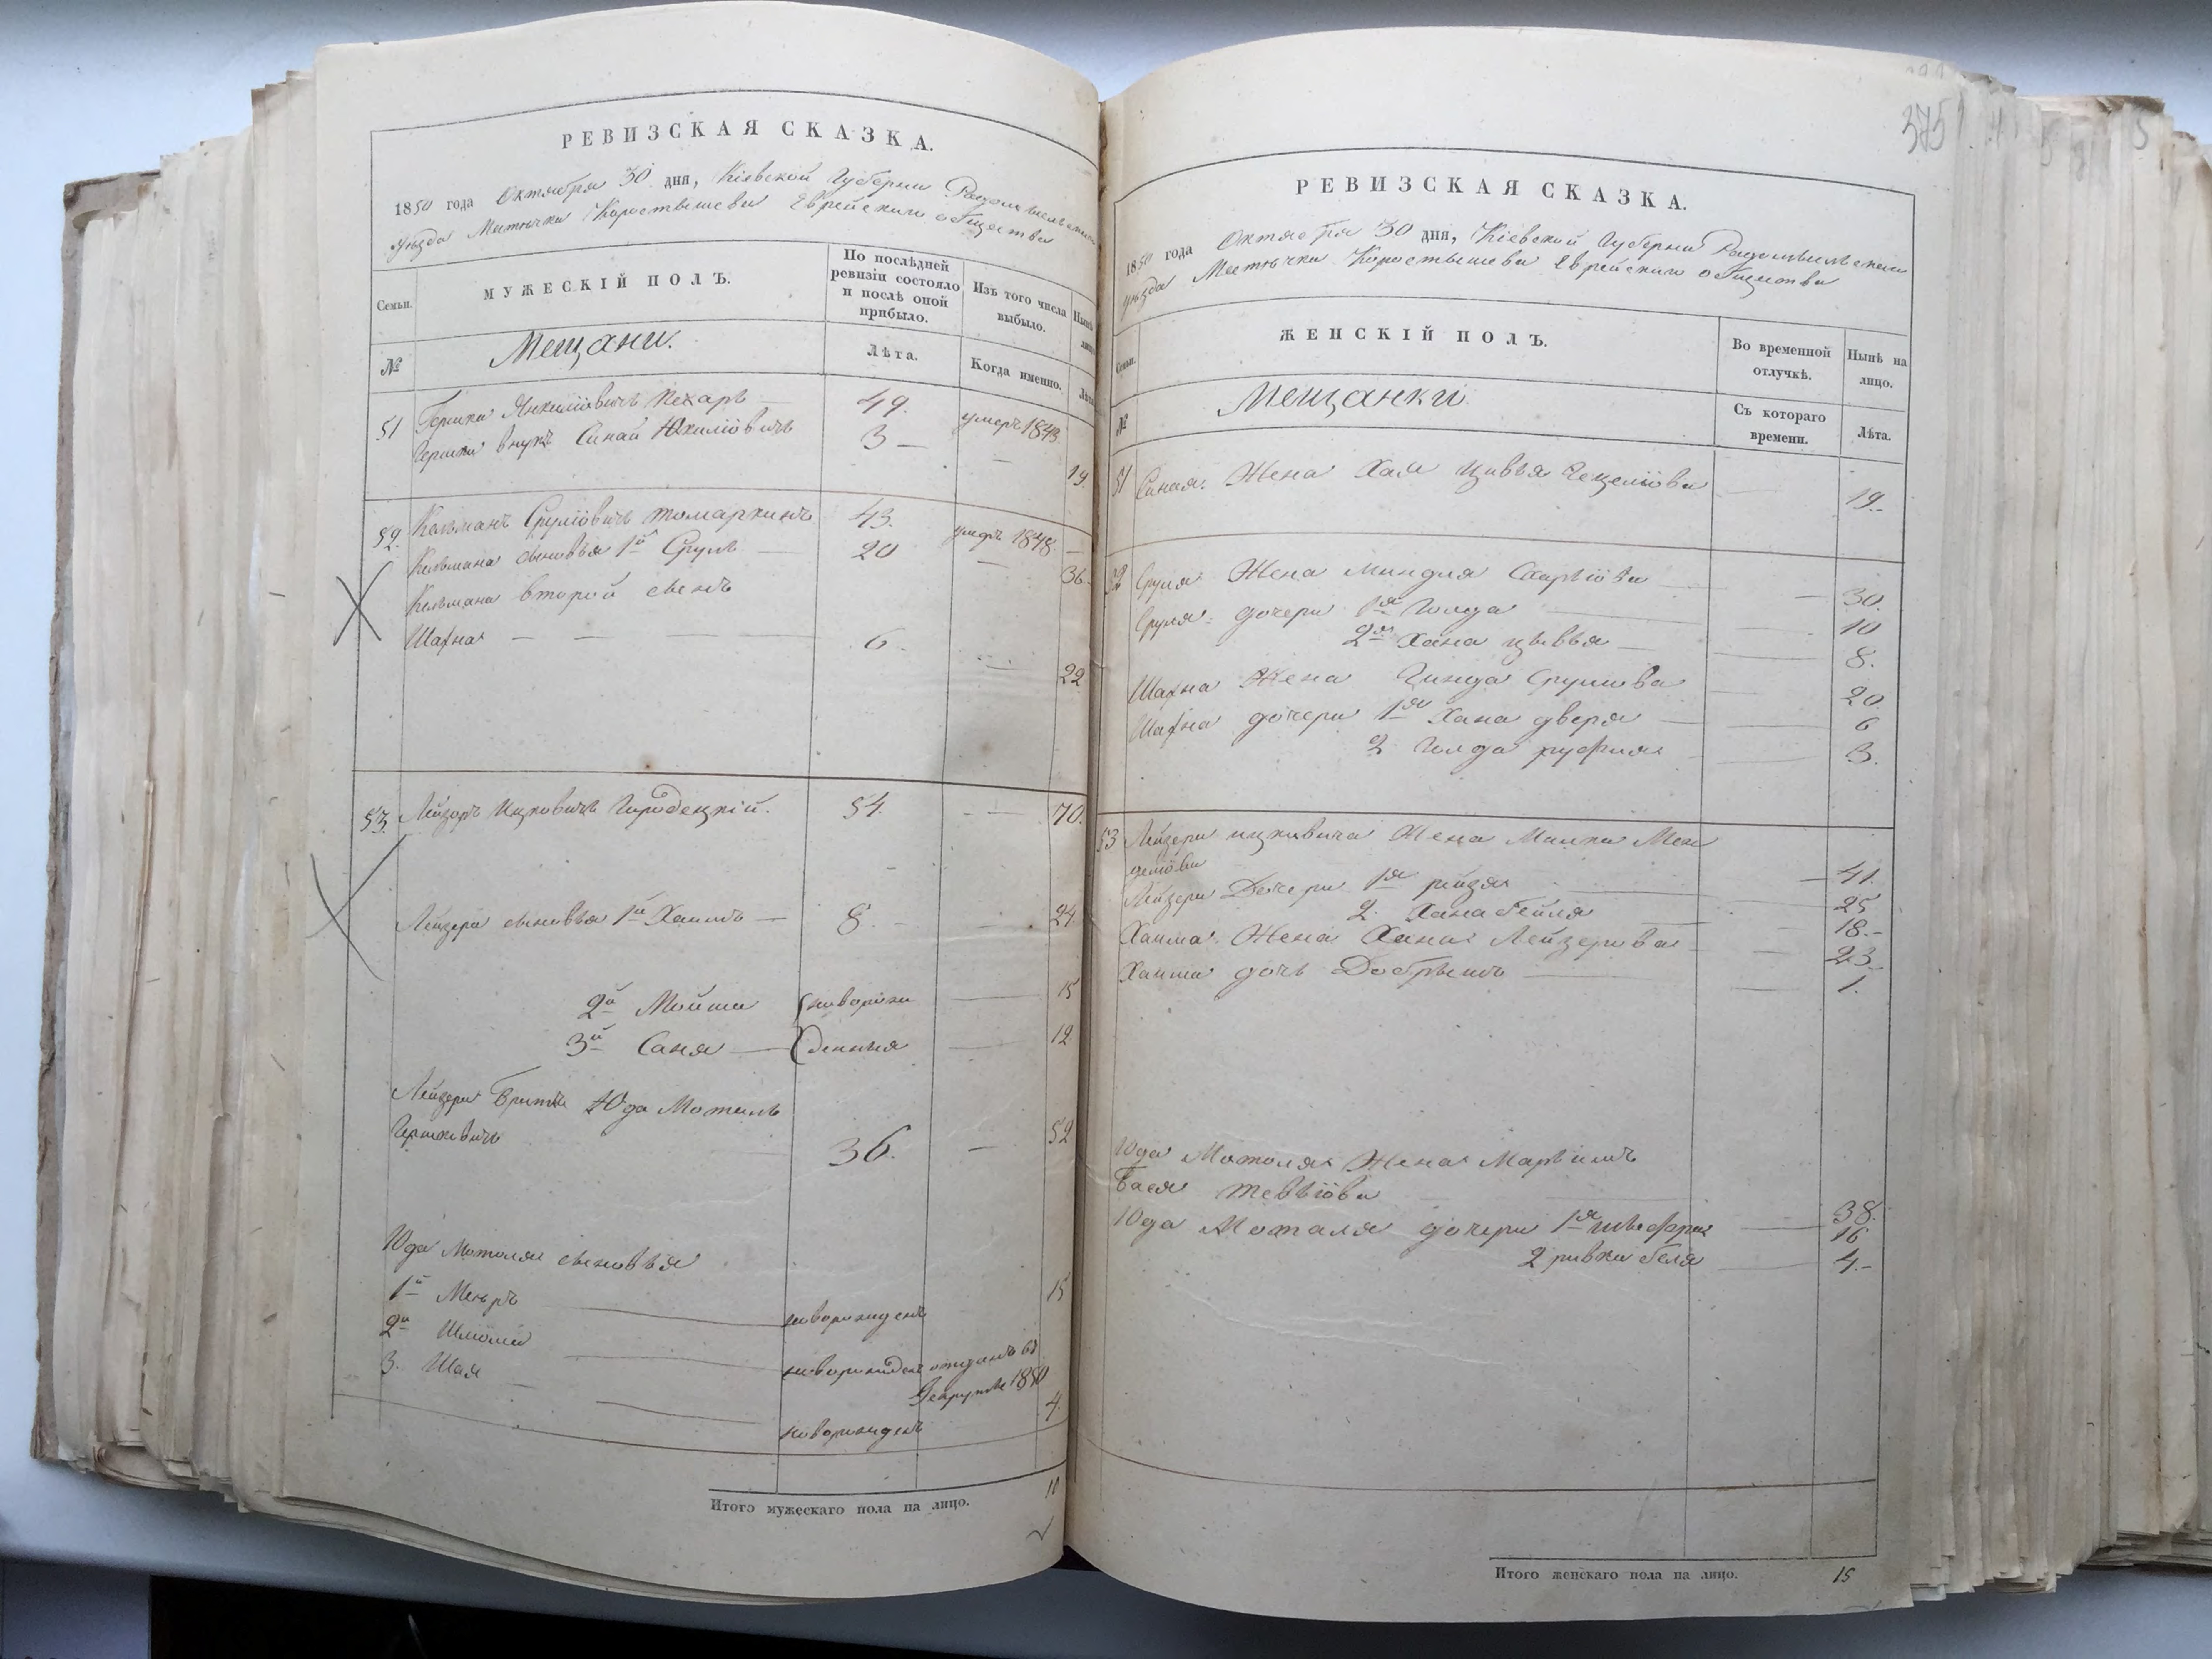 РЕВИЗСКАЯ СКАЗКА.
1850 года Октября 30 дня, Кіевской Губерни Радомысльскаго
уѣзда Мѣстечка Коростышева Еврейскаго общества
Семьи.
МУЖЕСКІЙ ПОЛЪ.
По послѣдней ревизіи состояло и послѣ оной прибыло.
Изъ того числа выбыло.
Нынѣ
№
Мещане.
Лѣта.
Когда именно.
Лѣта
51 Гершко Янкиліовичъ Пекарь — 49. умеръ 1843
Гершки внукъ Синай 3 — — 19.
52. Кельманъ Сруліовичъ Томаркинъ 43. умеръ 1848 —
Кельмана сыновья 1й Сруль — 20 — 36.
Кельмана второй сынъ
Шахна — — 6. — 22
53. Лейзоръ Ицковичъ Городецкій. 54. — — 70.
Лейзера сыновья 1й Хаимъ — 8. — — 24.
2й Мойше новорож — 15
3й Саня — денныя — 12
Лейзера братъ Юда Мотель
Гершковичъ 36. — 52
Юда Мотеля сыновья
1й Меиръ — новорожденъ 15
2й Шліома — новорожденъ отданъ въ
рекруты 1850
3. Шая — новорожденъ 4.
Итого мужескаго пола на лицо. 10
375
РЕВИЗСКАЯ СКАЗКА.
1850 года Октября 30 дня, Кіевской Губерни Радомысльскаго
уѣзда Мѣстечка Коростышева Еврейскаго общества
Семьи.
ЖЕНСКІЙ ПОЛЪ.
Во временной отлучкѣ.
Нынѣ на лицо.
№
Мещанки
Съ котораго времени.
Лѣта.
51 Синая Жена Хая Цивья — 19.
52 Сруля Жена Миндля — 30.
Сруля дочери 1я Голда — 10
2я Хана Цывья — 8.
Шахна Жена Гинда Срулиова — 20.
Шахна дочери 1я Хана Двера — 6
2 Голда — 3.
53 Лейзера Ицковича Жена Малка Мен
деліова — 41.
Лейзера Дочери 1я Рейзя — 25
2. Хана Бейля — 18.
Хаима Жена Хана Лейзерова — 23.
Хаима дочь Добрышъ — 1.
Юда Мотеля Жена Марьямъ
Бася Тевьіова — 38.
Юда Мотеля дочери 1я Шифра — 16
2 Ривка Бейля — 4.
Итого женскаго пола на лицо. 15